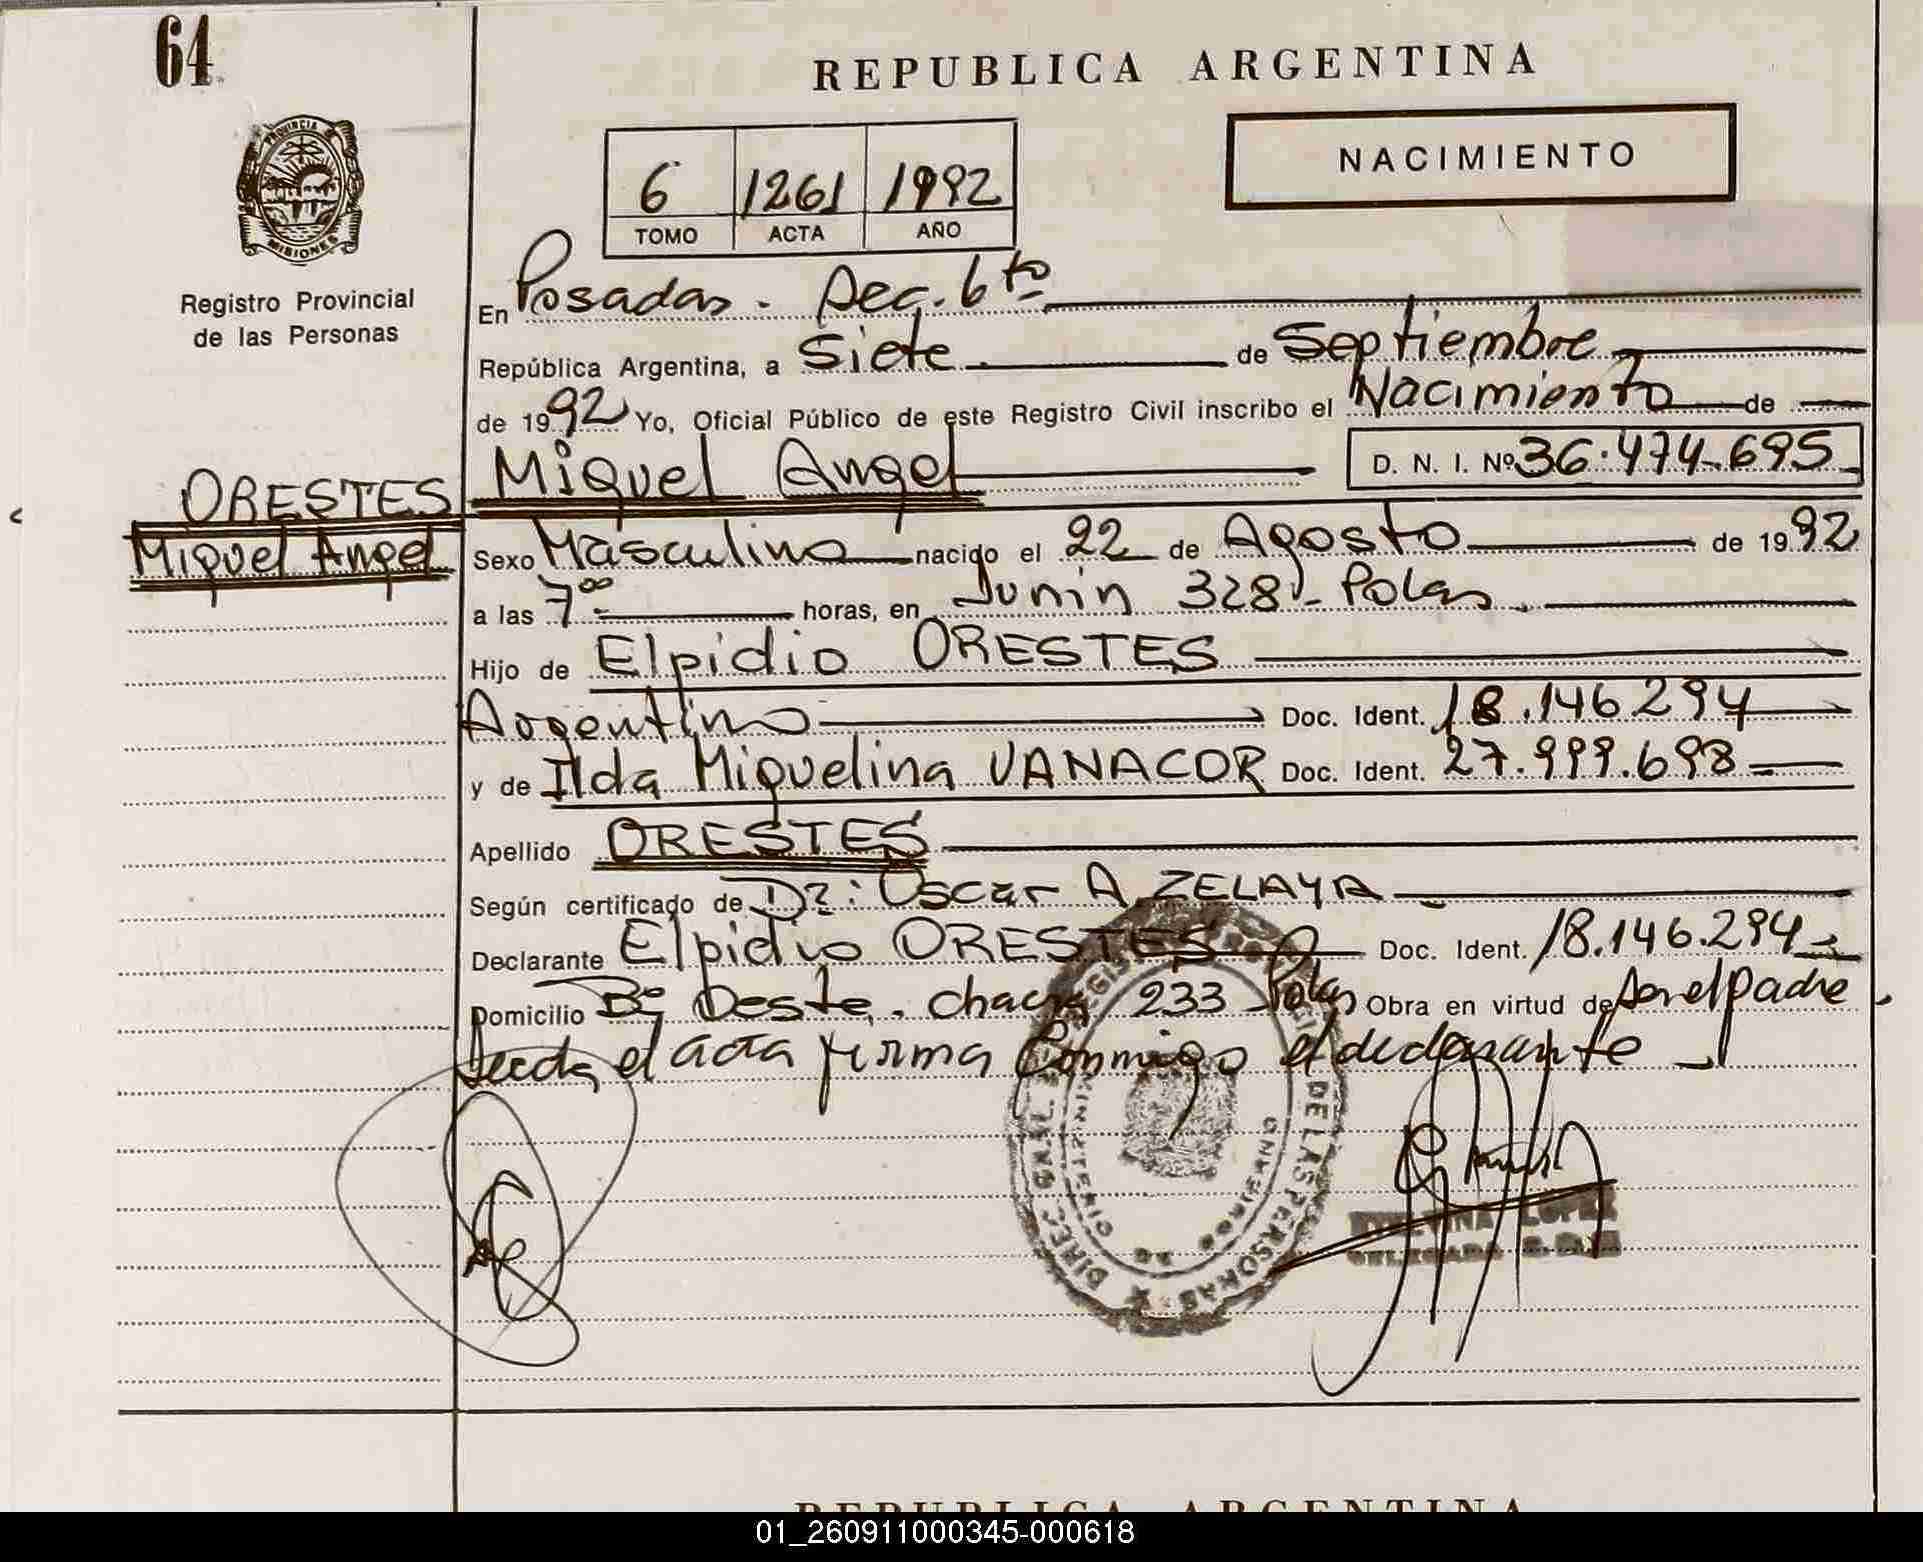 64
REPUBLICA ARGENTINA
NACIMIENTO
6 1261 1992
TOMO ACTA AÑO
PROVINCIA DE MISIONES
Registro Provincial
de las Personas
En Posadas. Sec. 6to
República Argentina, a Siete de Septiembre
de 1992 Yo, Oficial Público de este Registro Civil inscribo el Nacimiento de
Miguel Angel D. N. I. Nº 36.474.695
ORESTES
Miguel Angel
Sexo Masculino nacido el 22 de Agosto de 1992
a las 7 00 horas, en Junin 328 - Pdas.
Hijo de Elpidio ORESTES
Argentino Doc. Ident. 18.146.294
y de Ilda Miguelina VANACOR Doc. Ident. 27.999.698
Apellido ORESTES
Según certificado de Dr: Oscar A ZELAYA
Declarante Elpidio ORESTES Doc. Ident. 18.146.294
Domicilio Bº Oeste. chacra 233 Pdas Obra en virtud de ser el padre
Leida el acta firma Conmigo el declarante
DIREC. GRAL. DEL REGISTRO DE LAS PERSONAS
LOPEZ
REPUBLICA ARGENTINA
01_260911000345-000618